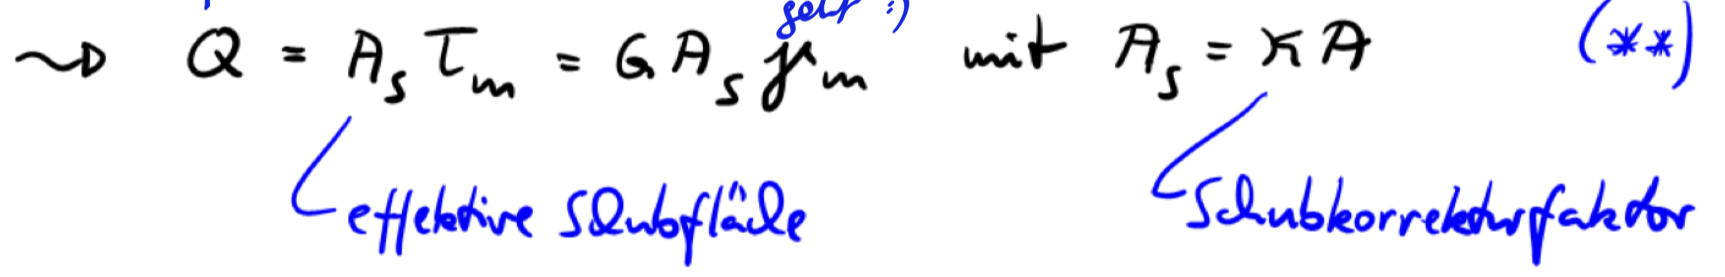 geht :)
⤳ Q = A_s τ_m = G A_s γ_m mit A_s = κ A (**)
effektive Schubfläche Schubkorrekturfaktor